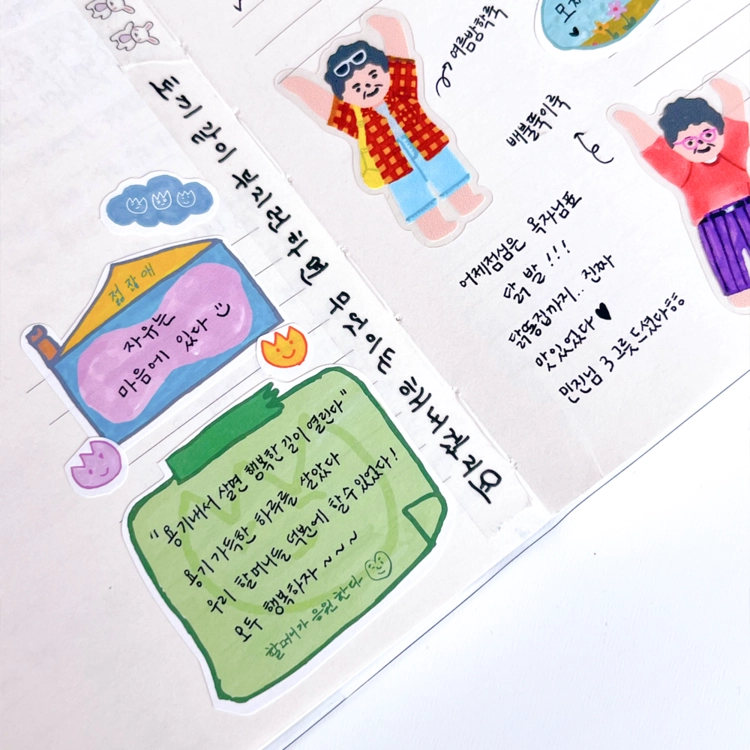 토끼 같이 부지런하면 무엇이든 해내겠지요
점잖애
자유는
마음에 있다
"용기내서 살면 행복한 길이 열린다"
용기 가득한 하루를 살았다
우리 할머니들 덕분에 할 수 있었다!
모두 행복하자 ~ ~ ~
할머니가 응원한다
여름방학룩
배불뚝이룩
어제점심은 옥자님표
닭 발 !!!
닭똥집까지.. 진짜
맛있었다 ♥
민진님 3그릇 드셨다ㅎㅎ